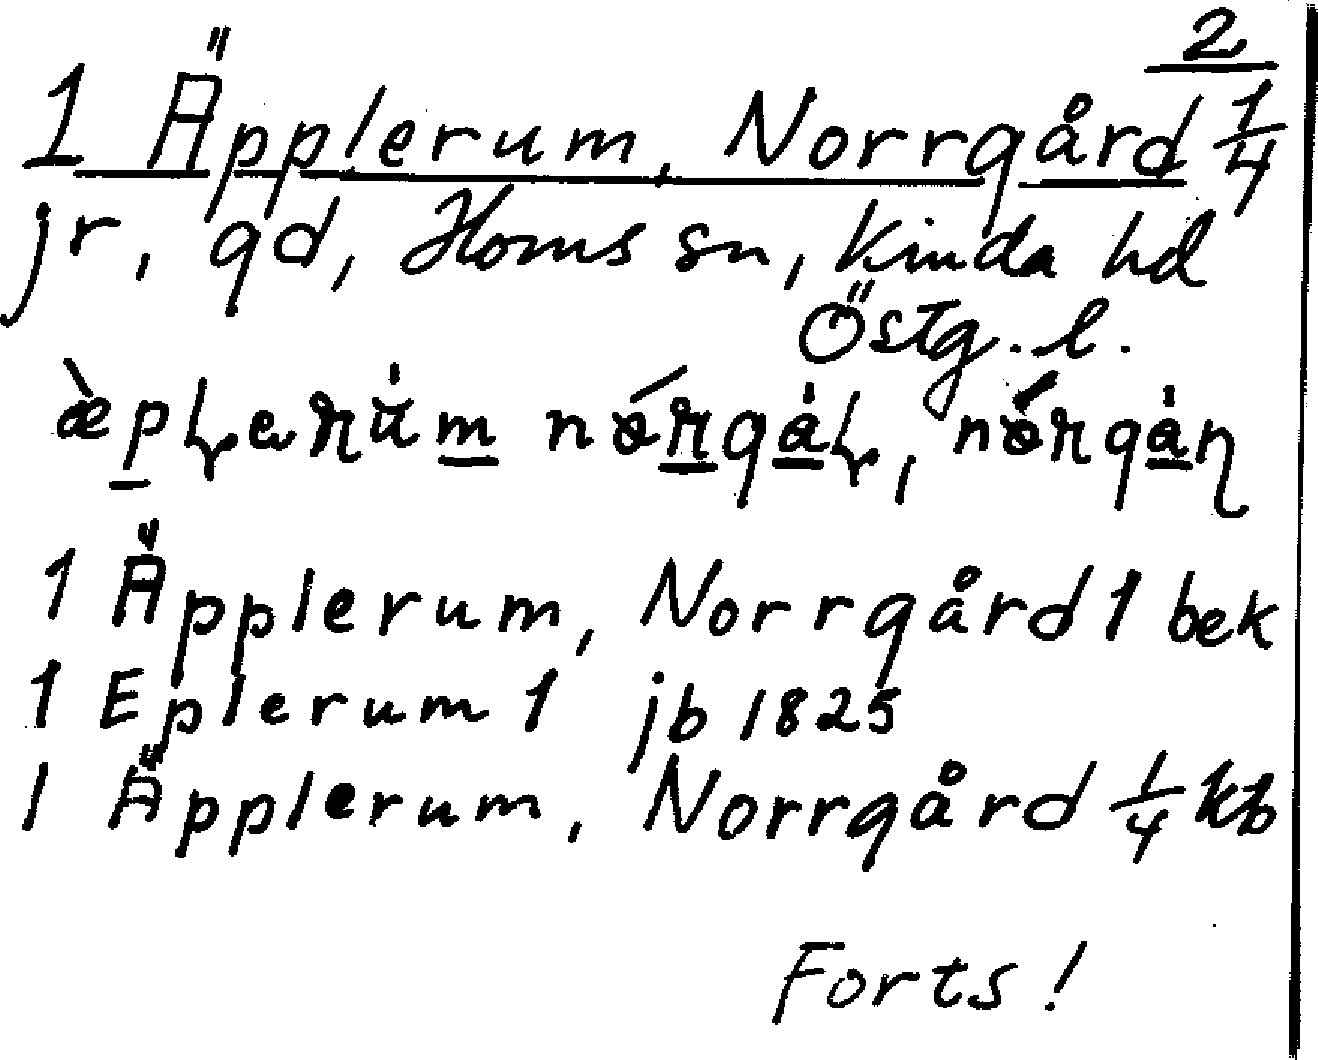 2
1 Äpplerum, Norrgård 1/4
jr, gd, Horns sn, Kinda hd
Östg. l.
1 Äpplerum, Norrgård 1 bek
1 Eplerum 1 jb 1825
1 Äpplerum, Norrgård 1/4 kb
Forts!